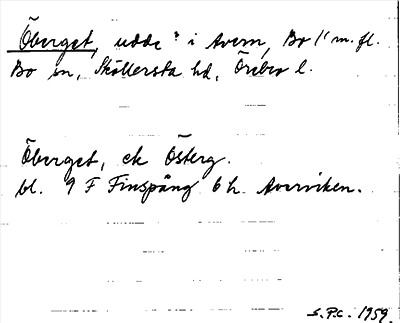 Öberget, udde i Avern, Bo 1¹ m. fl.
Bo sn, Sköllersta hd, Örebro l.
Öberget, ek Österg.
bl. 9 F Finspång 6 h. Averviken.
S.P.C. 1959.